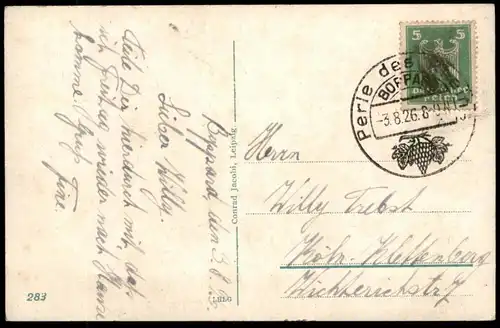 Boppard, den 3.8.26.
Lieber Willy.
Teile Dir hierdurch mit, daß
ich Freitag wieder nach Hause
komme. Gruß
Tine.
283
Conrad Jacobi, Leipzig
5 5
Perle des
BOPPARD
-3.8.26.8-9
Herrn
Willy Trebst
Köln-Klettenberg
Wichterichstr. 7